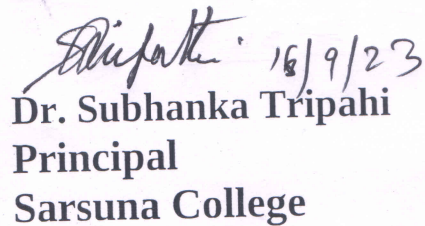 /9/23
Dr. Subhanka Tripahi
Principal
Sarsuna College